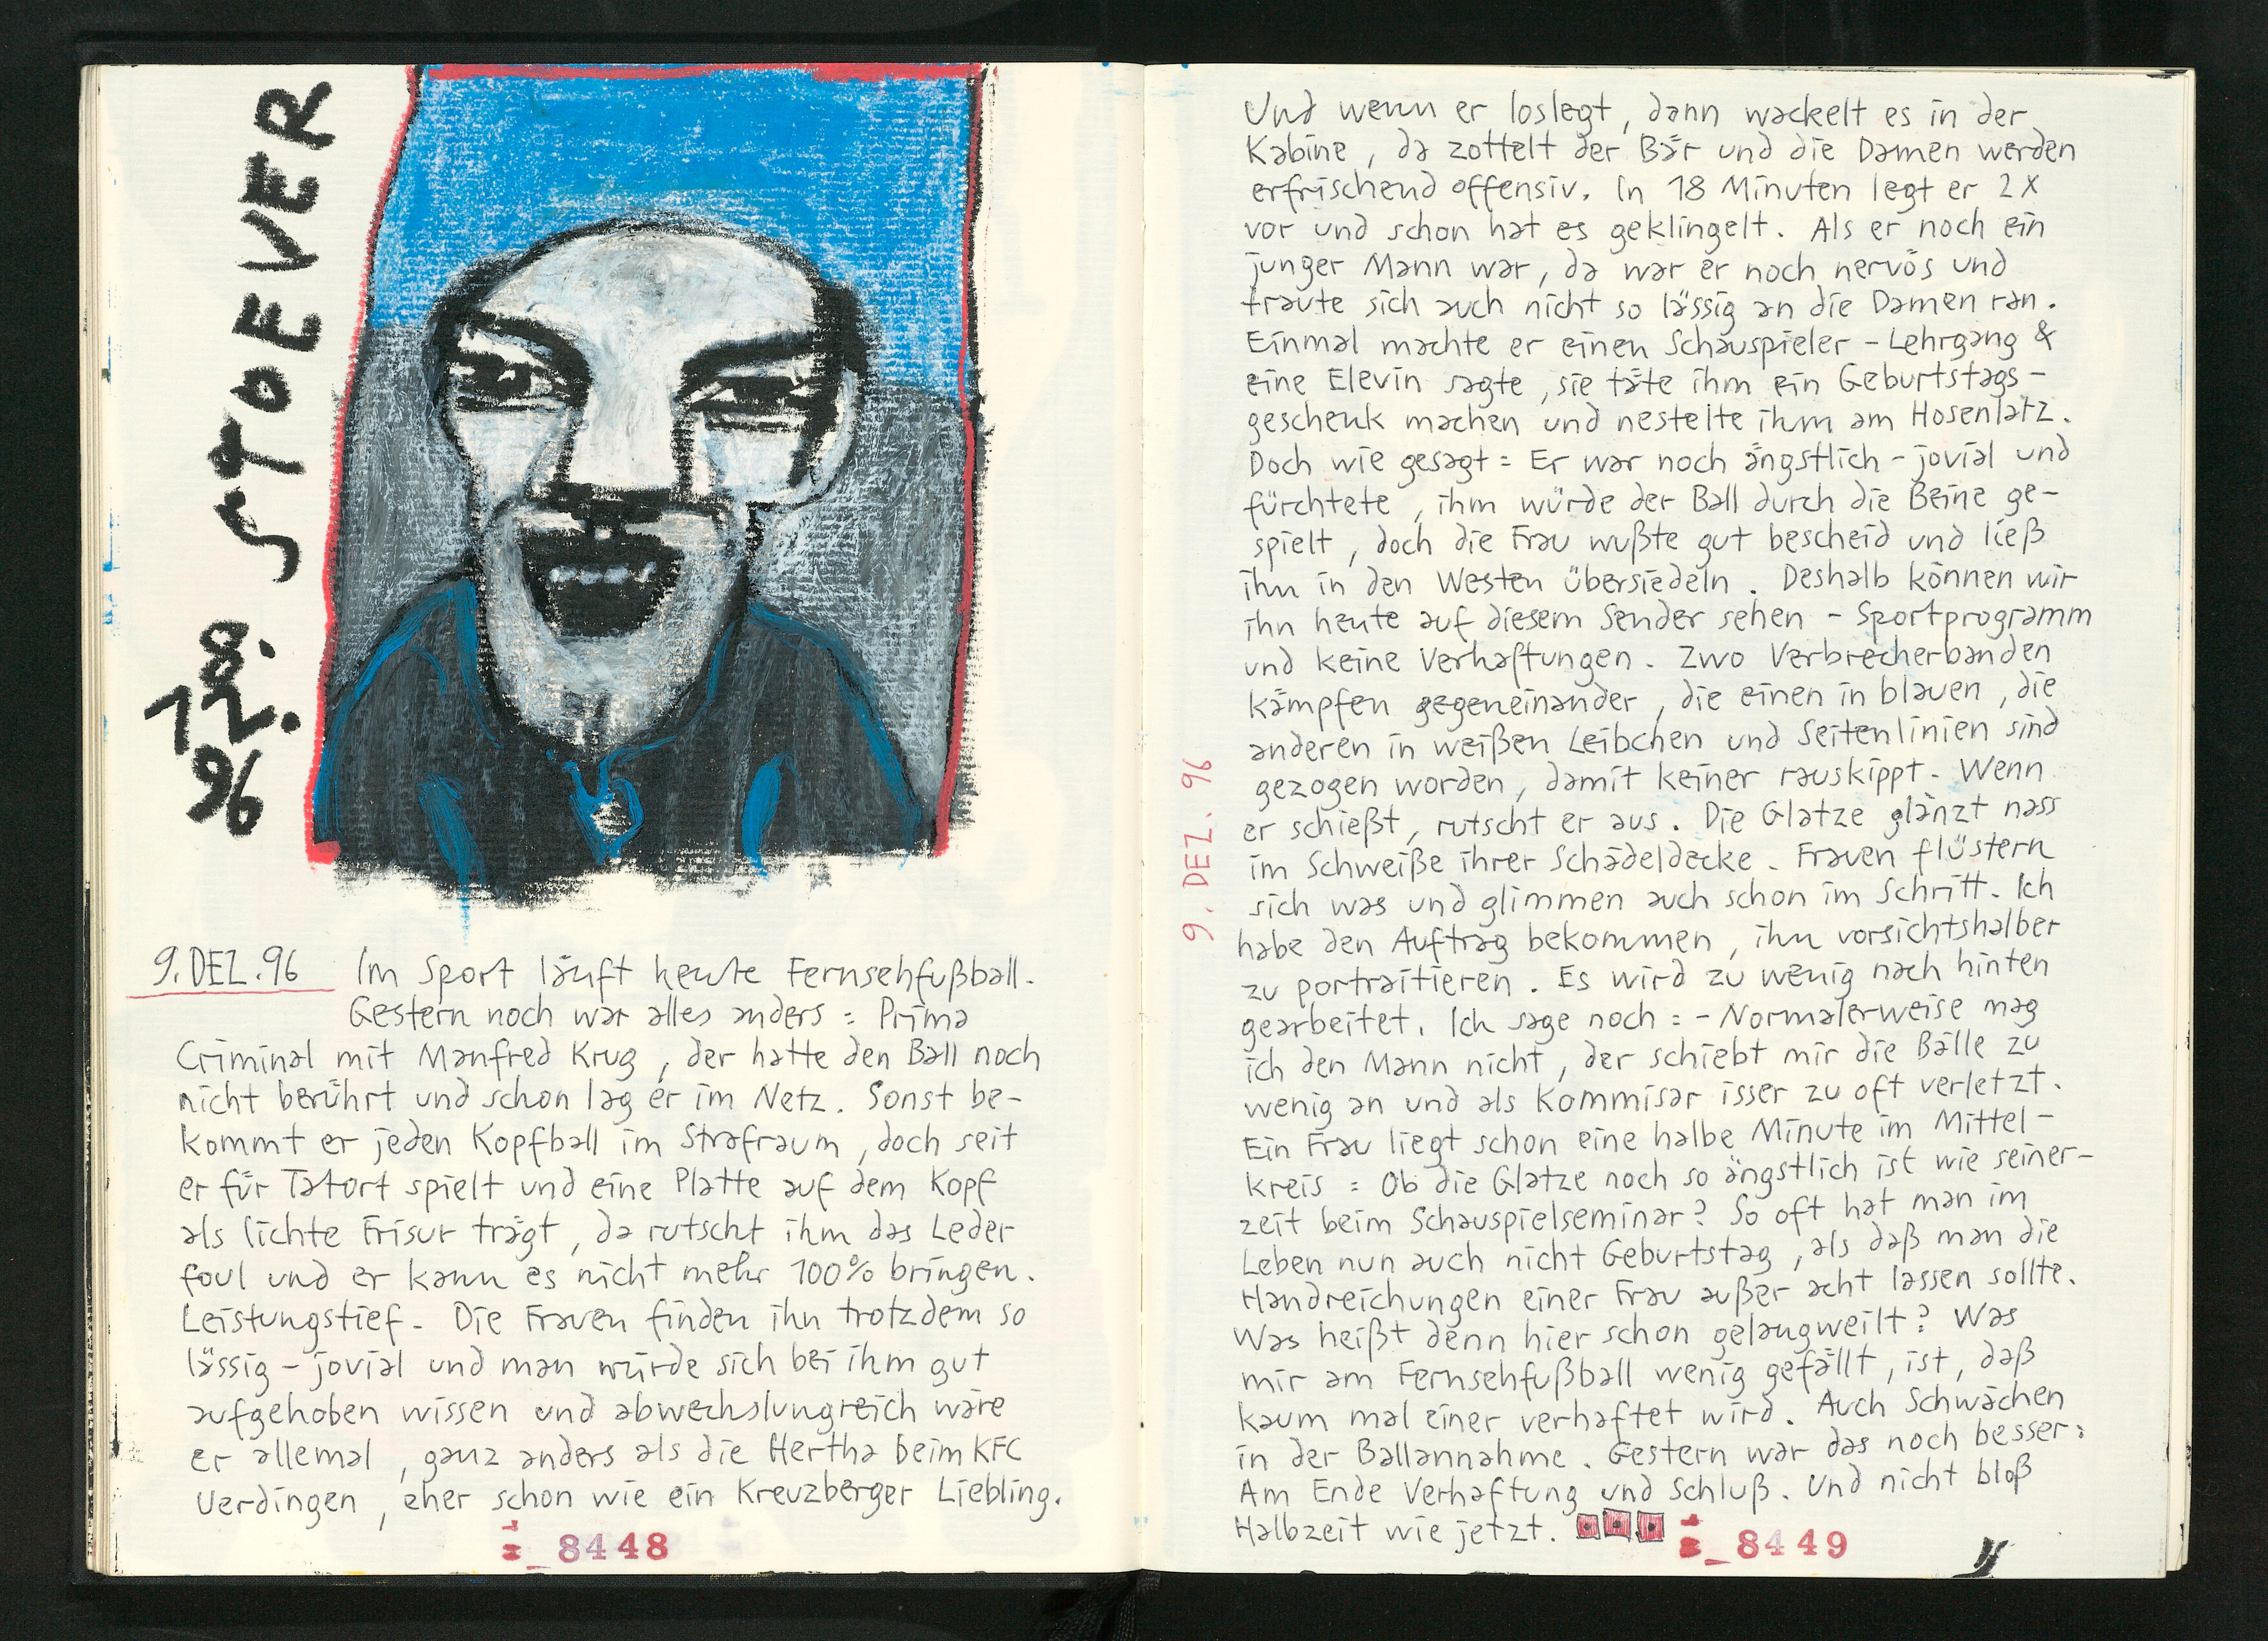 STOEVER
8.
12.
96
9. DEZ. 96 Im Sport läuft heute Fernsehfußball.
Gestern noch war alles anders = Prima
Criminal mit Manfred Krug, der hatte den Ball noch
nicht berührt und schon lag er im Netz. Sonst be-
kommt er jeden Kopfball im Strafraum, doch seit
er für Tatort spielt und eine Platte auf dem Kopf
als lichte Frisur trägt, da rutscht ihm das Leder
foul und er kann es nicht mehr 100% bringen.
Leistungstief. Die Frauen finden ihn trotzdem so
lässig-jovial und man würde sich bei ihm gut
aufgehoben wissen und abwechslungreich wäre
er allemal, ganz anders als die Hertha beim KFC
Uerdingen, eher schon wie ein Kreuzberger Liebling.
8448
Und wenn er loslegt, dann wackelt es in der
Kabine, da zottelt der Bär und die Damen werden
erfrischend offensiv. In 18 Minuten legt er 2x
vor und schon hat es geklingelt. Als er noch ein
junger Mann war, da war er noch nervös und
traute sich auch nicht so lässig an die Damen ran.
Einmal machte er einen Schauspieler-Lehrgang &
eine Elevin sagte, sie täte ihm ein Geburtstags-
geschenk machen und nestelte ihm am Hosenlatz.
Doch wie gesagt = Er war noch ängstlich-jovial und
fürchtete, ihm würde der Ball durch die Beine ge-
spielt, doch die Frau wußte gut bescheid und ließ
ihn in den Westen übersiedeln. Deshalb können wir
ihn heute auf diesem Sender sehen - Sportprogramm
und keine Verhaftungen. Zwo Verbrecherbanden
kämpfen gegeneinander, die einen in blauen, die
anderen in weißen Leibchen und Seitenlinien sind
gezogen worden, damit keiner rauskippt. Wenn
er schießt, rutscht er aus. Die Glatze glänzt nass
im Schweiße ihrer Schädeldecke. Frauen flüstern
sich was und glimmen auch schon im Schritt. Ich
habe den Auftrag bekommen, ihn vorsichtshalber
zu portraitieren. Es wird zu wenig nach hinten
gearbeitet. Ich sage noch = - Normalerweise mag
ich den Mann nicht, der schiebt mir die Bälle zu
wenig an und als Kommisar isser zu oft verletzt.
Ein Frau liegt schon eine halbe Minute im Mittel-
kreis = Ob die Glatze noch so ängstlich ist wie seiner-
zeit beim Schauspielseminar? So oft hat man im
Leben nun auch nicht Geburtstag, als daß man die
Handreichungen einer Frau außer acht lassen sollte.
Was heißt denn hier schon gelangweilt? Was
mir am Fernsehfußball wenig gefällt, ist, daß
kaum mal einer verhaftet wird. Auch Schwächen
in der Ballannahme. Gestern war das noch besser:
Am Ende Verhaftung und Schluß. Und nicht bloß
Halbzeit wie jetzt.
8449
9. DEZ. 96